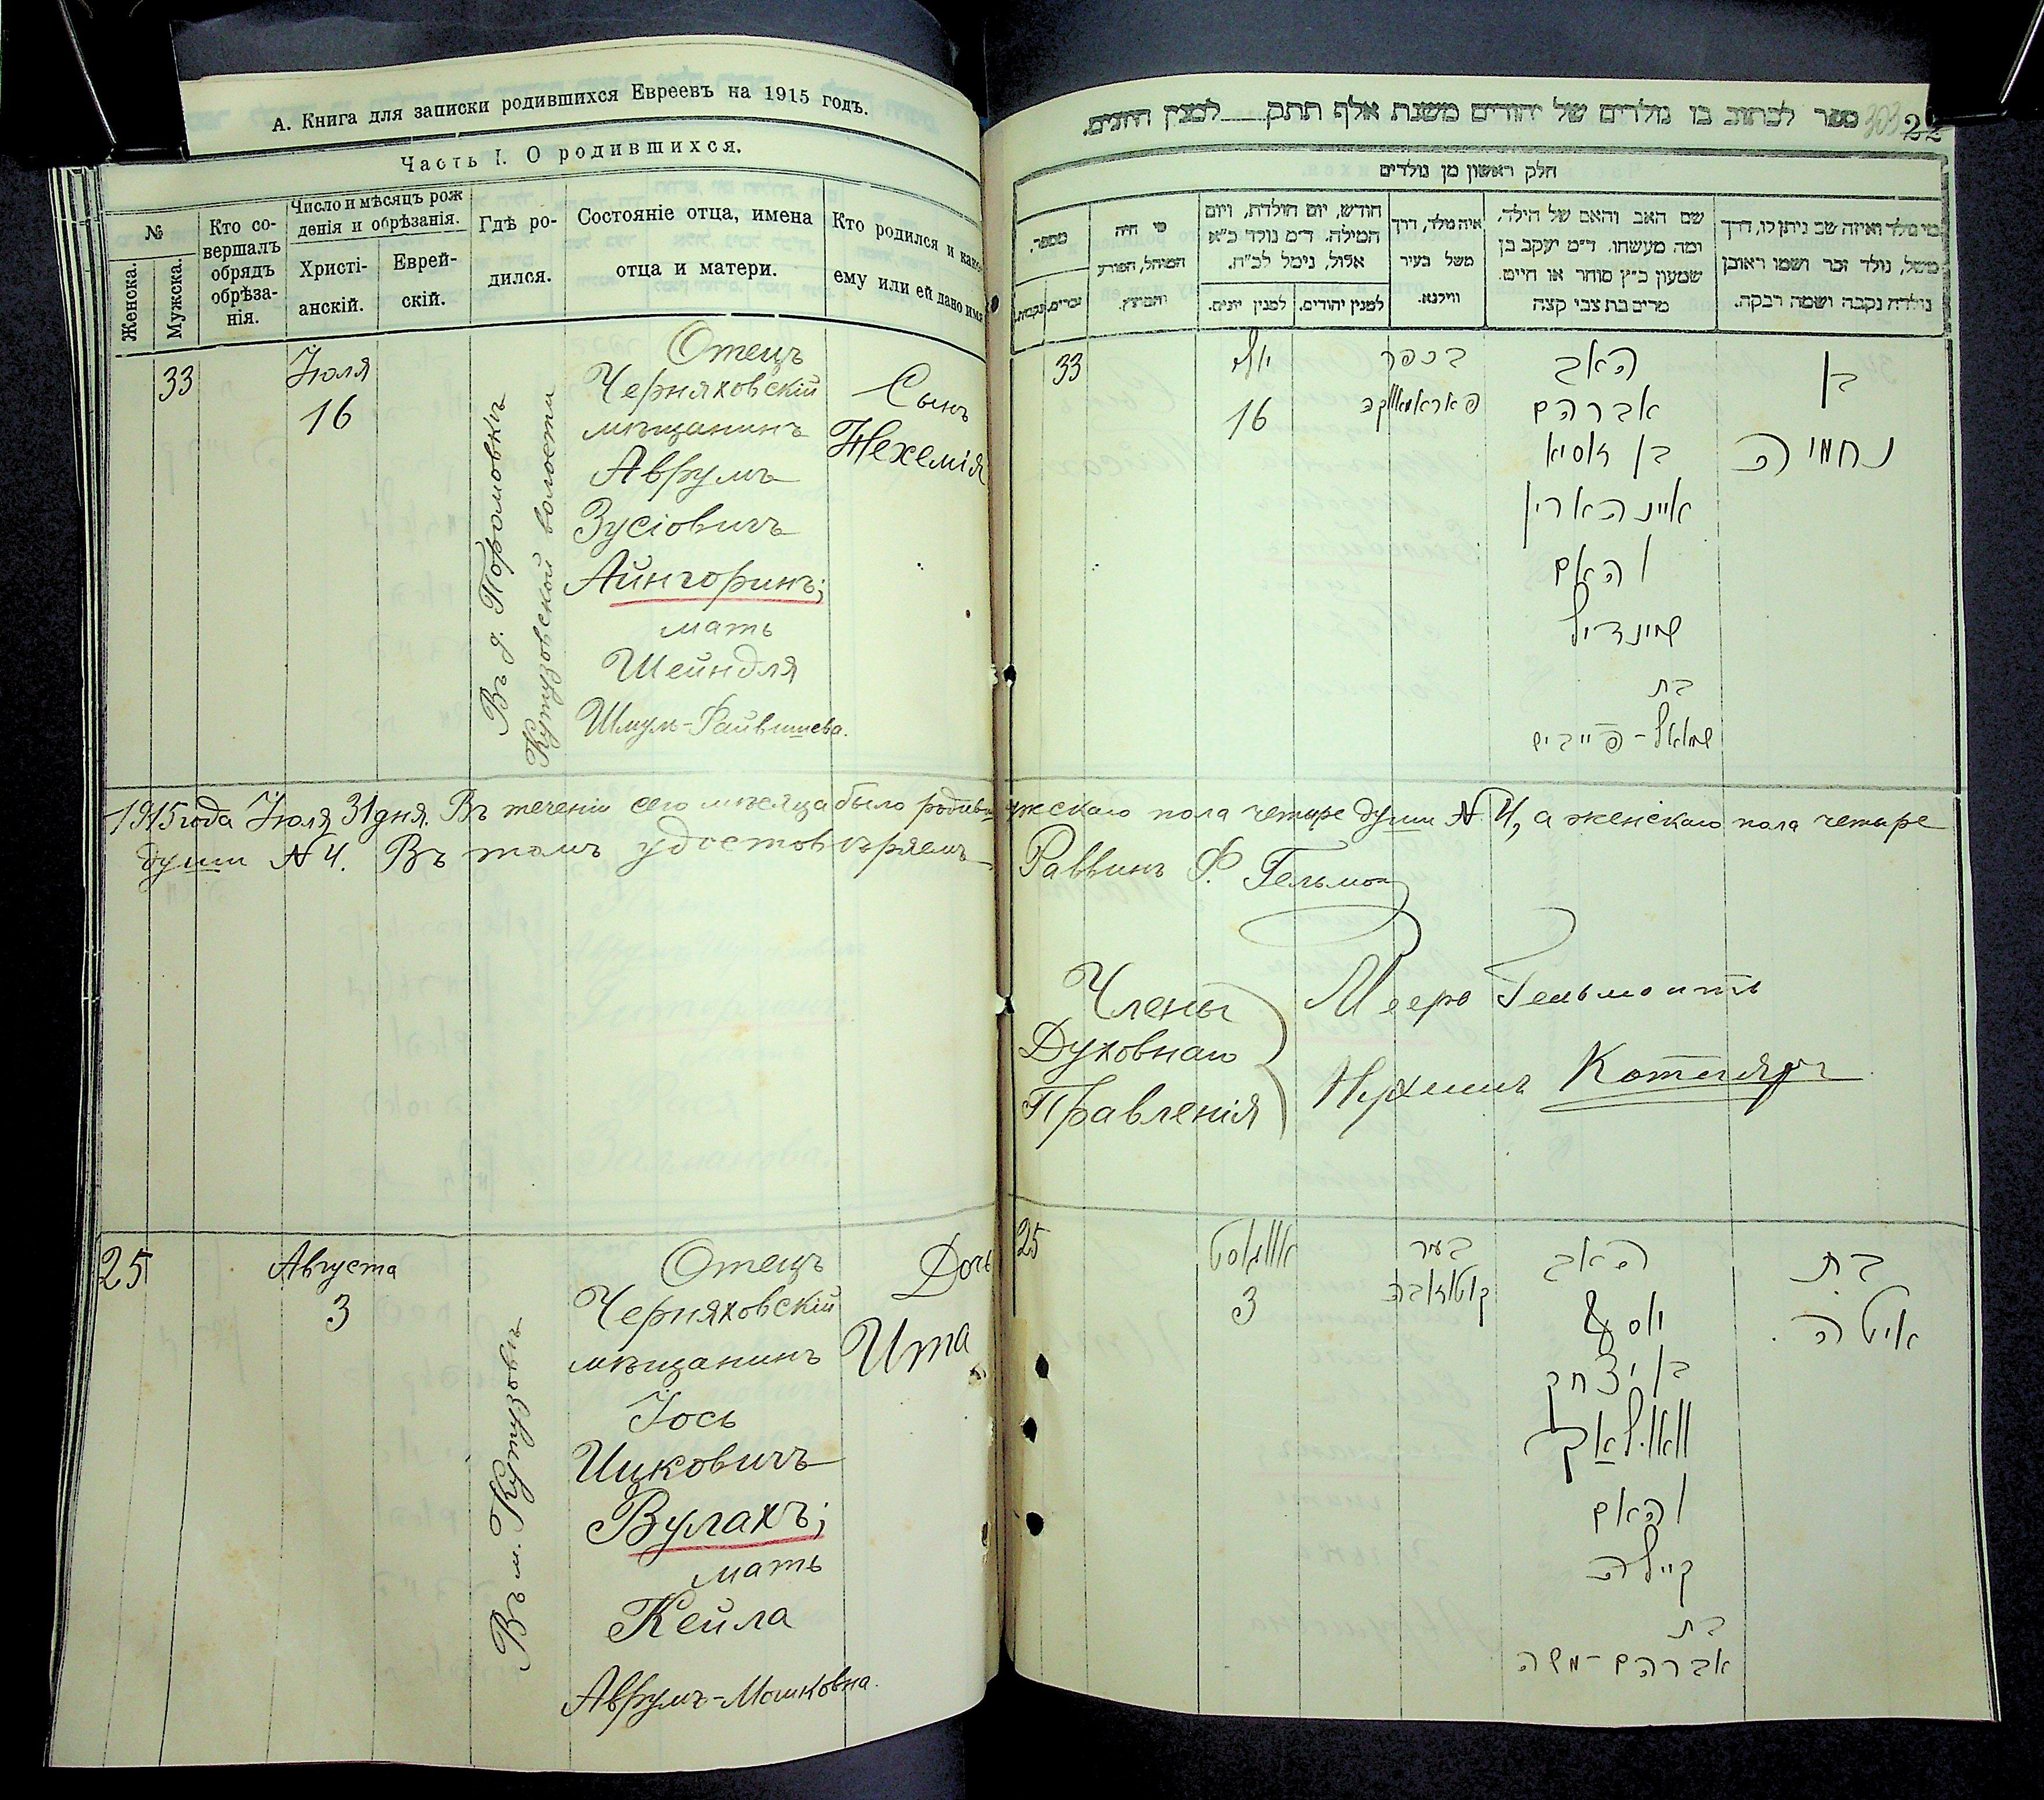 А. Книга для записки родившихся Евреевъ на 1915 годъ.
Часть I. О родившихся.
№
Женска.
Мужска.
Кто со-
вершалъ
обрядъ
обрѣза-
нія.
Число и мѣсяцъ рож
денія и обрѣзанія.
Христі-
анскій.
Еврей-
скій.
Гдѣ ро-
дился.
Состояніе отца, имена
отца и матери.
Кто родился и како-
ему или ей дано имя
33
Іюля
16
Въ д. Порамовкѣ
Кутузовской волости
Отецъ
Черняховскій
мѣщанинъ
Аврумъ
Зусіовичъ
Айнгоринъ;
мать
Шейндля
Шмуль-Файвишева.
Сынъ
Нехемія
1915 года Іюля 31 дня. Въ теченіи сего мѣсяца было
души № 4. Въ томъ удостовѣряемъ
25
Августа
3
Въ м. Кутузовѣ
Отецъ
Черняховскій
мѣщанинъ
Іось
Ицковичъ
Вулахъ;
мать
Кейла
Аврумъ-Мошковна.
Дочь
Ита
ספר לכתוב בו נולדים של יהודים משנת אלף תתק למנין היונים.
303
22
חלק ראשון מן נולדים
מספר.
זכרים.
נקבות.
מי היה
המוהל, הפורע
והמוצץ.
חודש, יום הולדת, ויום
המילה. ד״מ נולד כ״א
אלול, נימל לכ״ח.
למנין יונים.
למנין יהודים.
איה מלד, דרך
משל בעיר
ווילנא.
שם האב והאם של הילד,
ומה מעשהו. ד״מ יעקב בן
שמעון כ״ץ סוחר או חיים.
מרים בת צבי קצה
מי נולד ואיזה שם ניתן לו, דרך
משל, נולד זכר ושמו ראובן
נולדה נקבה ושמה רבקה.
33
יולי
16
בכפר
האב
אברהם
בן זוסיא
איינהארין
והאם
שיינדיל
בת
שמואל-פייביש
בן
נחמיה
жескаго пола четыре души № 4, а женскаго пола четыре
Раввинъ Ф. Гельмон
Члены
Духовнаго
Правленія
Мееръ Гельмонтъ
Нухимъ Котляръ
25
אויגוסט
3
בעיר
קוטוזאבה
האב
יוסף
בן יצחק
וואולאך
והאם
קיילה
בת
אברהם-משה
בת
איטה.